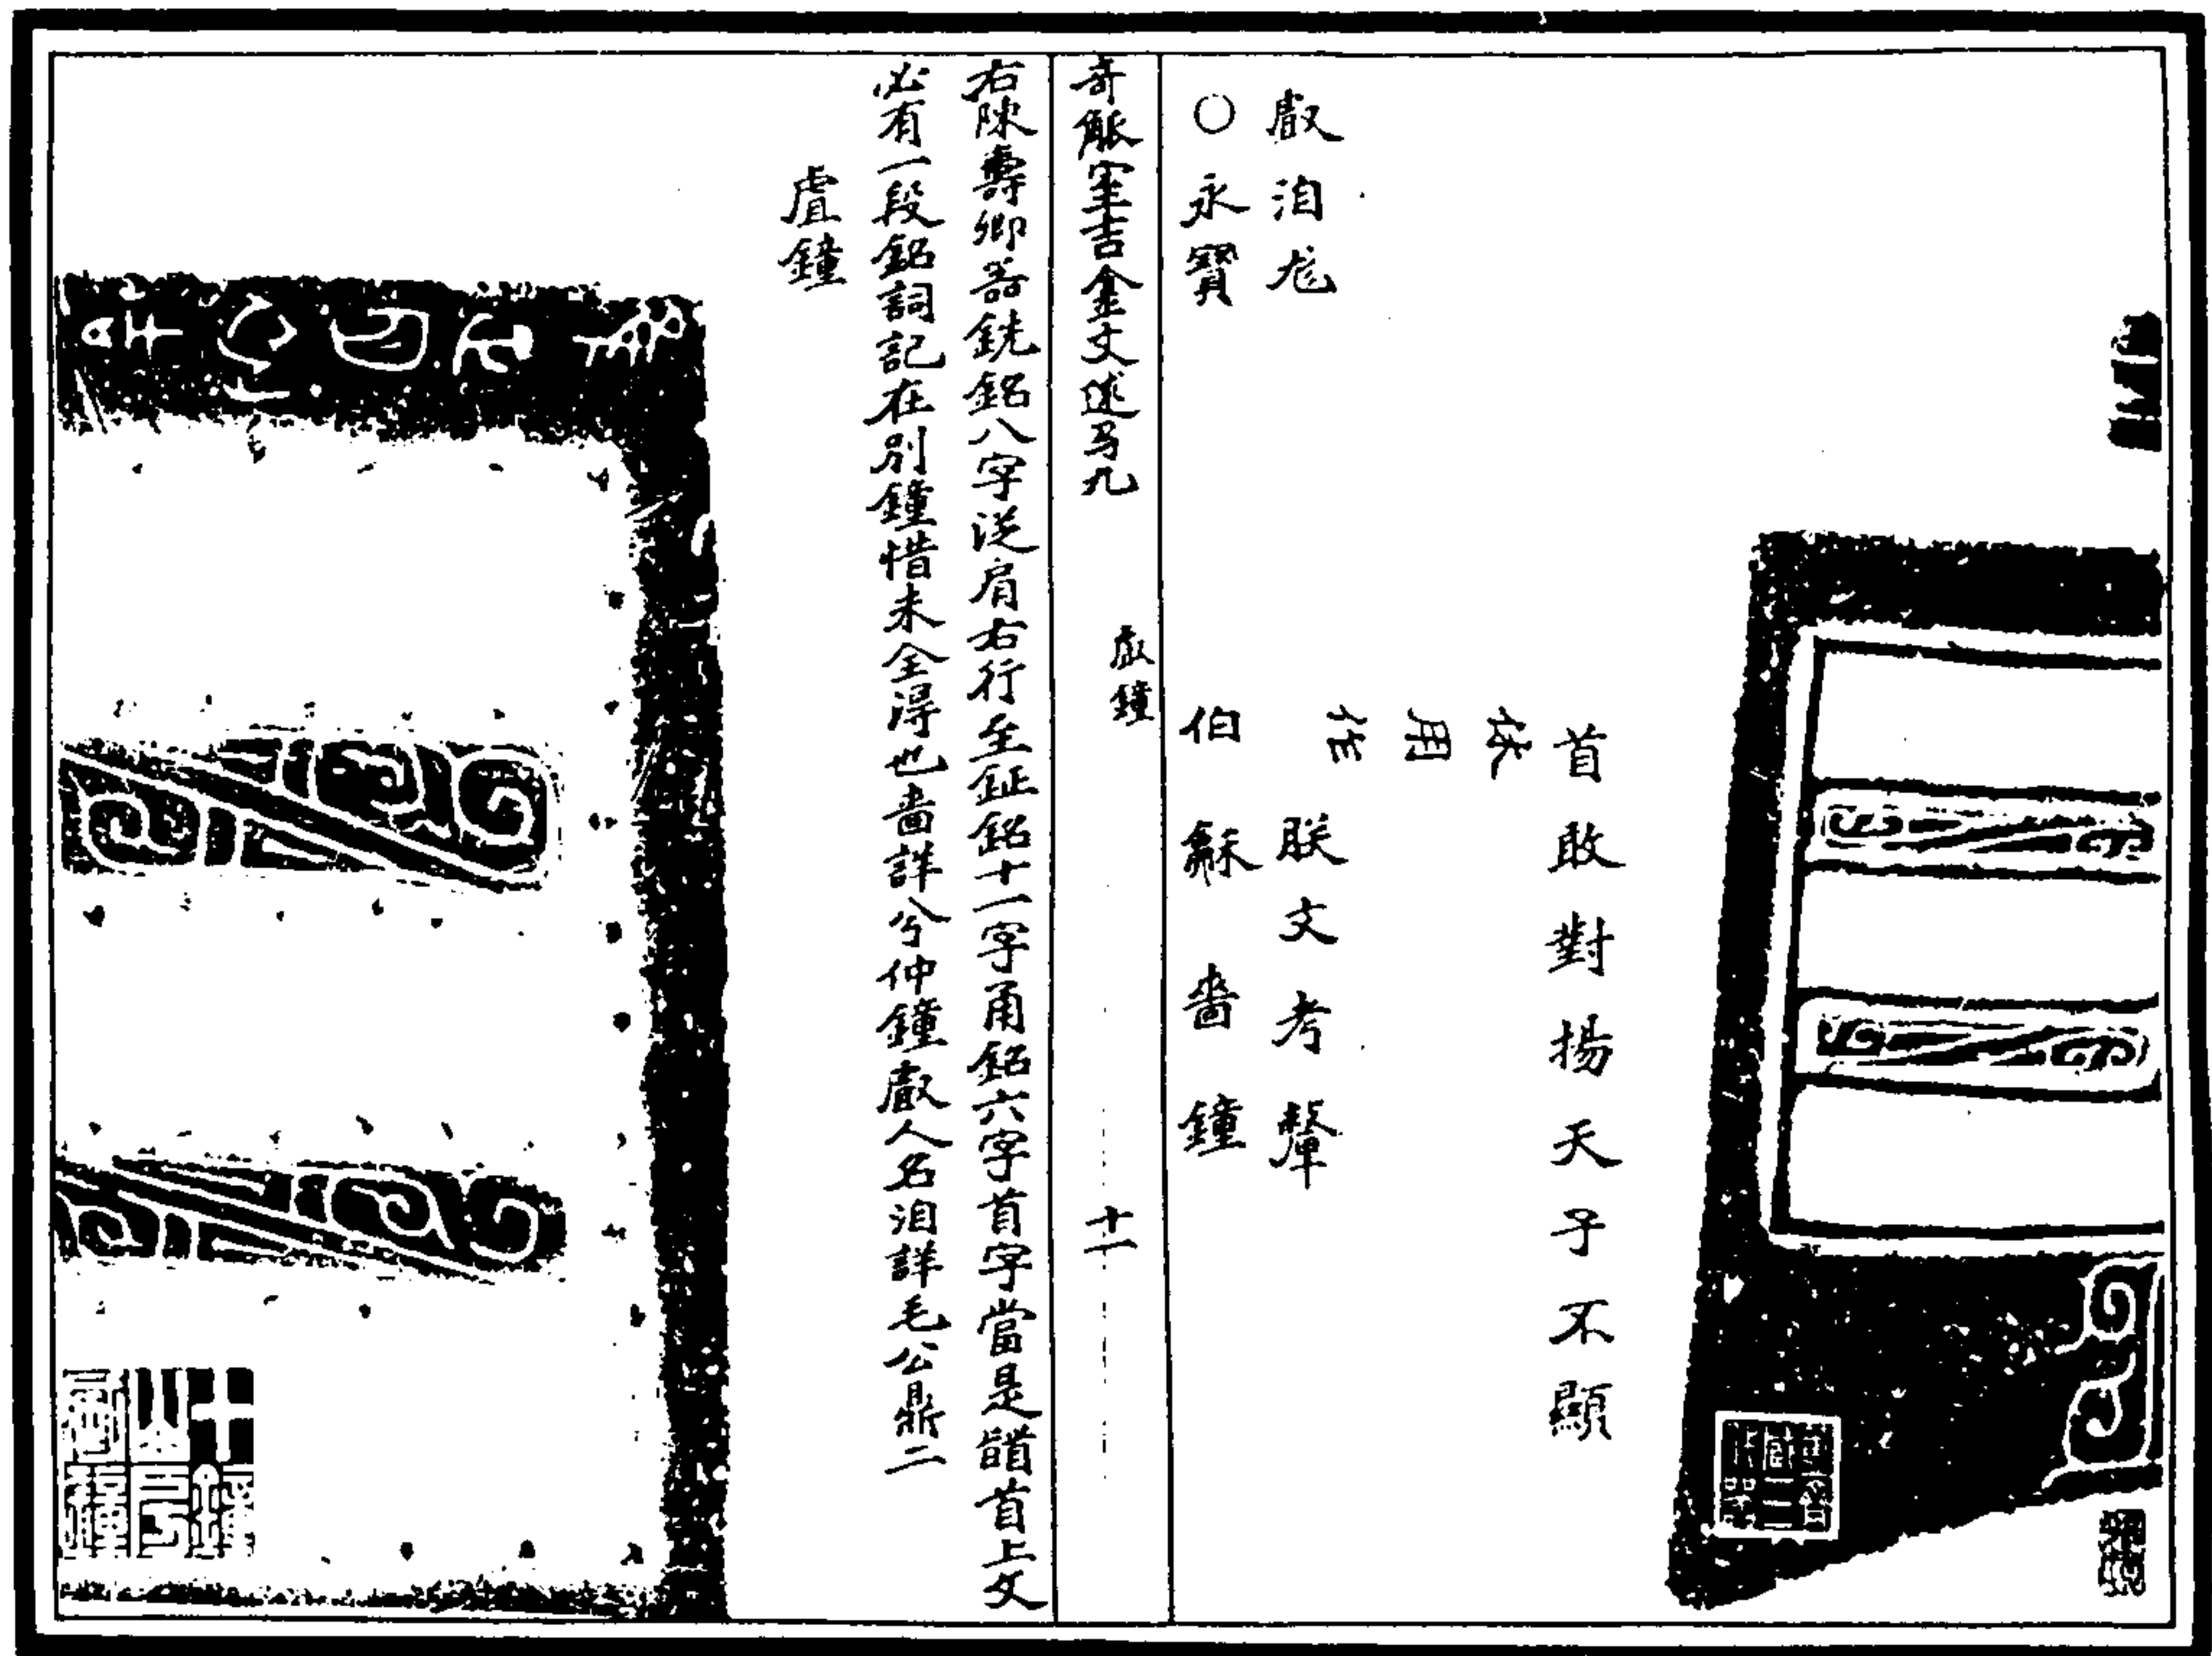 首敢對揚天子不顯
休
用
作
朕文考釐
伯龢𠶷鐘
𠭯洎尨
〇永寶
奇觚室吉金文述弓九
𠭯鐘
十一
右陳壽卿器銑銘八字從肩右行至鉦銘十一字甬銘六字首字當是䭫首上文
必有一段銘詞記在別鐘惜未全得也𠶷詳兮仲鐘𠭯人名洎詳毛公鼎二
虘鐘